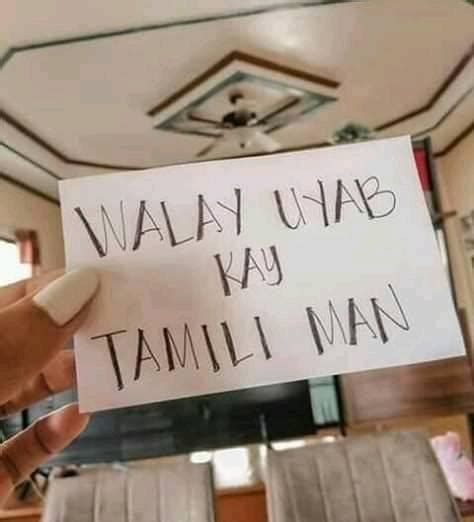 WALAY UYAB
KAY
TAMILI MAN